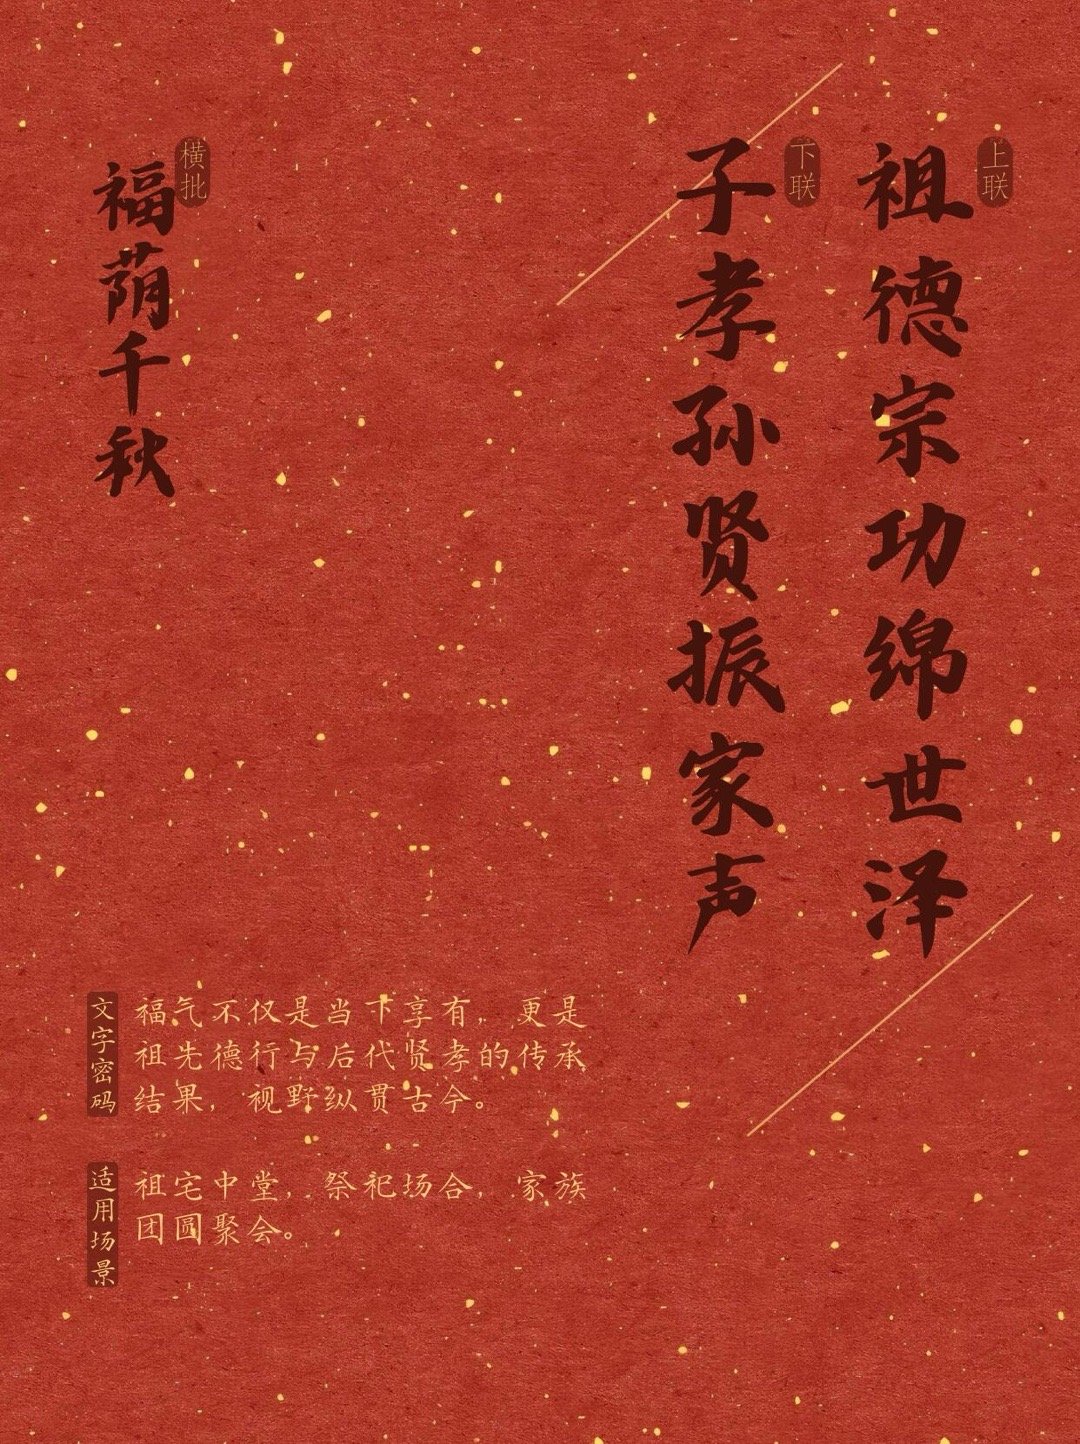 上联
祖德宗功绵世泽
下联
子孝孙贤振家声
横批
福荫千秋
文字密码
福气不仅是当下享有，更是
祖先德行与后代贤孝的传承
结果，视野纵贯古今。
适用场景
祖宅中堂，祭祀场合，家族
团圆聚会。